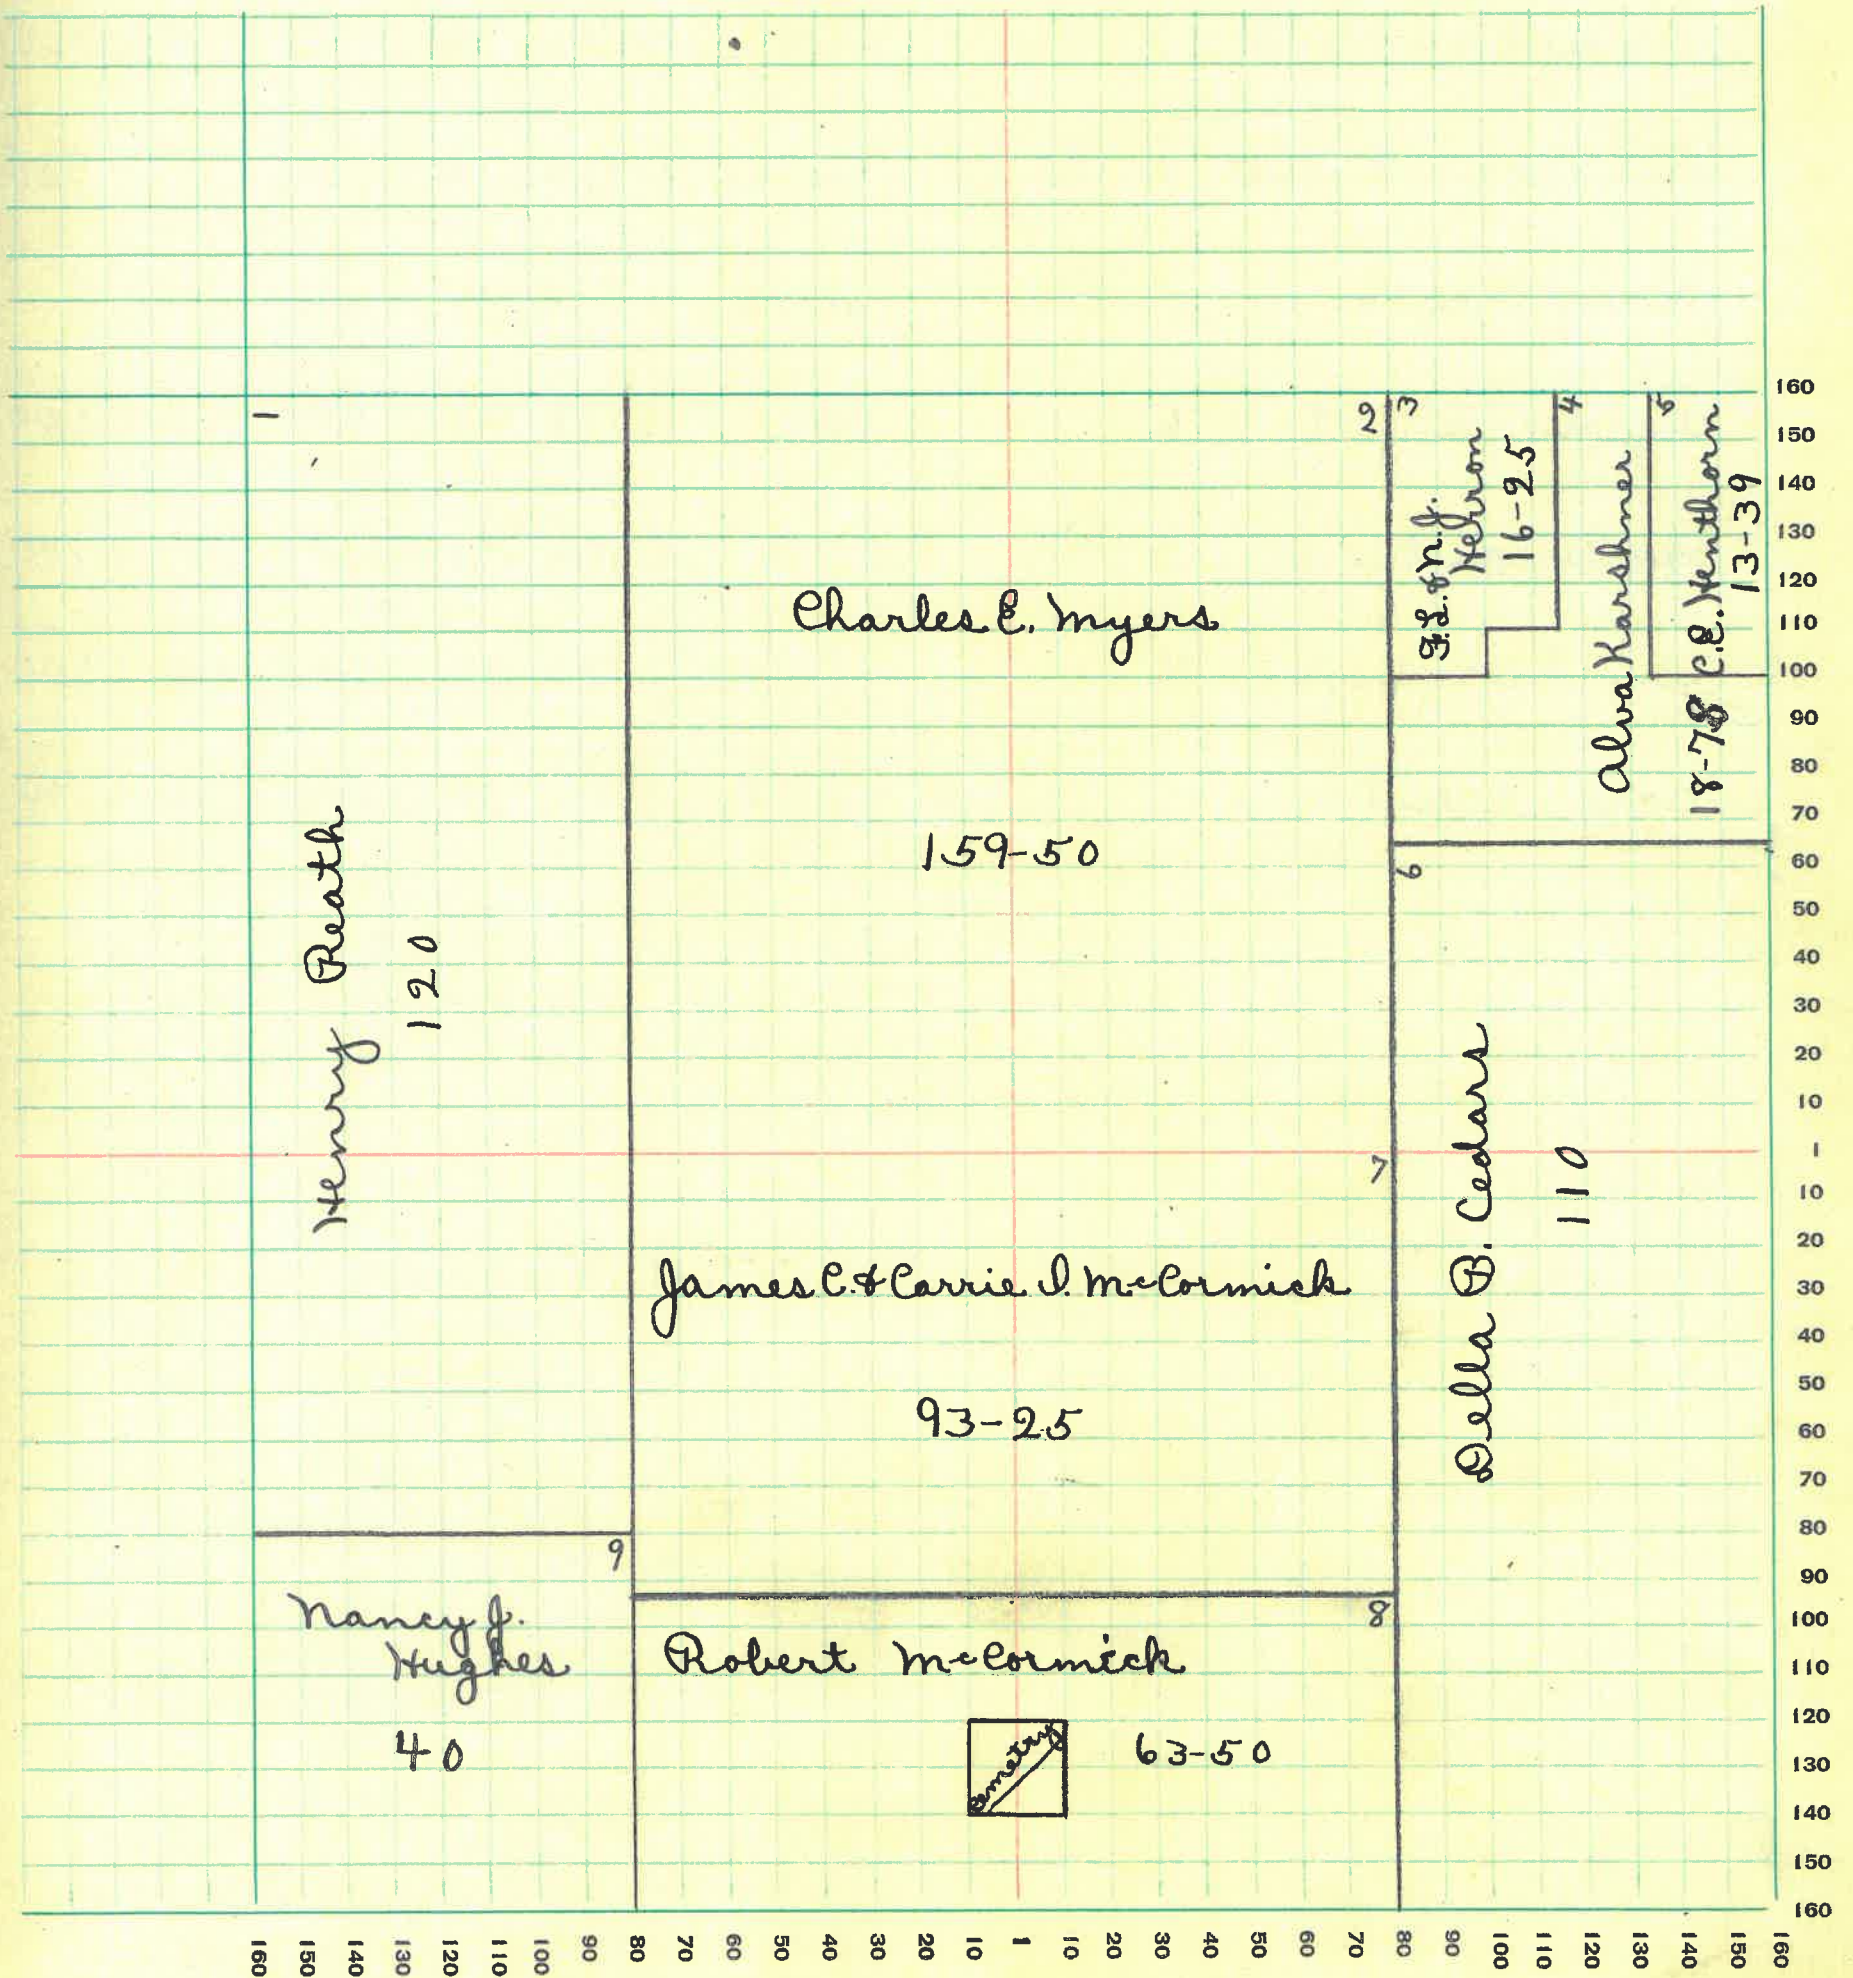 1
Henry Reath
120
2
Charles C. Myers
159-50
3
F.L. & N.J.
Herron
16-25
4
Alva Karshner
18-78
5
C.E. Henthorn
13-39
6
Della B. Cedars
110
7
James C. & Carrie I. McCormick
93-25
8
Robert McCormick
Cemetry
63-50
9
Nancy J.
Hughes
40
160
150
140
130
120
110
100
90
80
70
60
50
40
30
20
10
1
10
20
30
40
50
60
70
80
90
100
110
120
130
140
150
160
160 150 140 130 120 110 100 90 80 70 60 50 40 30 20 10 1 10 20 30 40 50 60 70 80 90 100 110 120 130 140 150 160